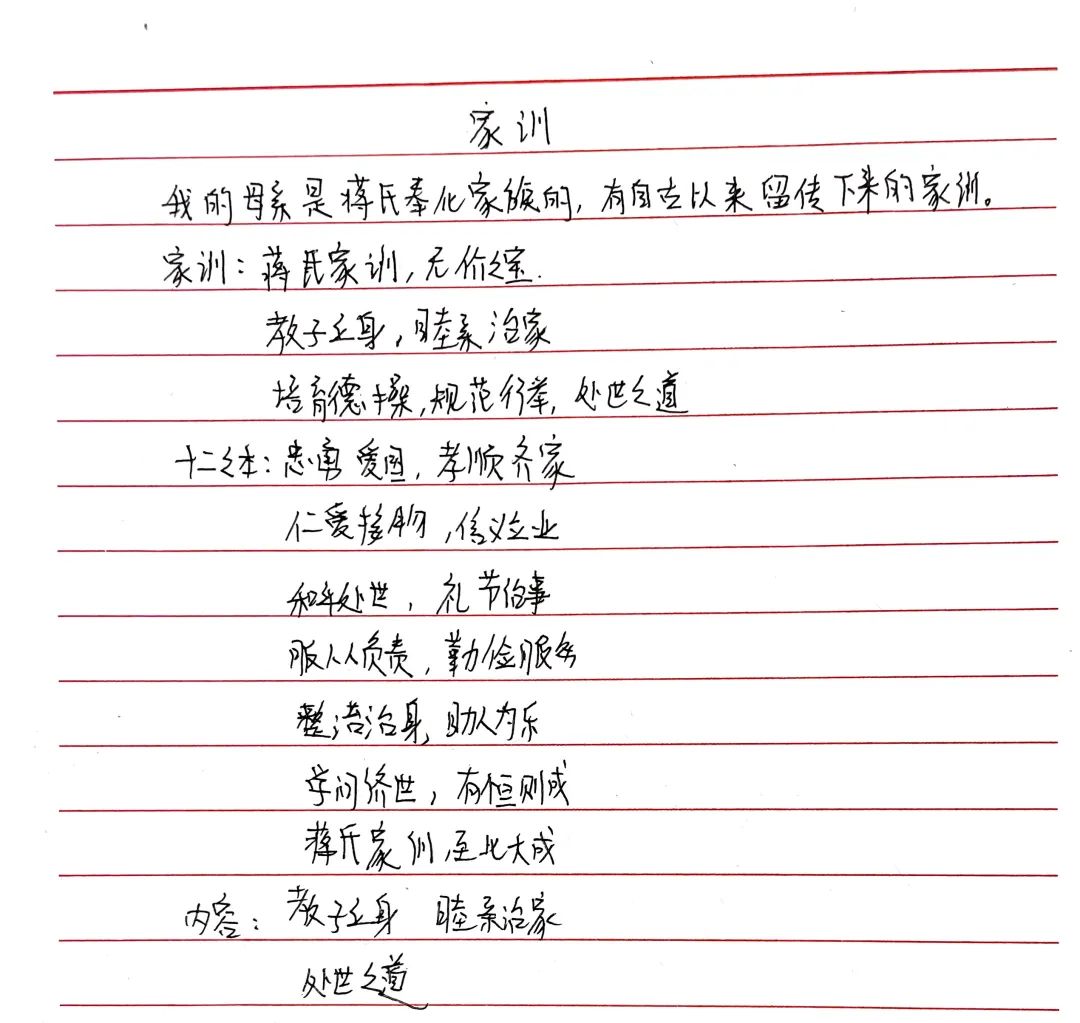 家训
我的母亲是蒋氏奉化家族的,有自古以来留传下来的家训。
家训:蒋氏家训,无价之宝.
教子正身,睦亲治家
培育德操,规范行举,处世之道
十二之本:忠勇爱国,孝顺齐家
仁爱接物,信义立业
和平处世,礼节治事
服从负责,勤俭服务
整洁治身,助人为乐
学问济世,有恒则成
蒋氏家训,至此大成
内容:教子正身 睦亲治家
处世之道